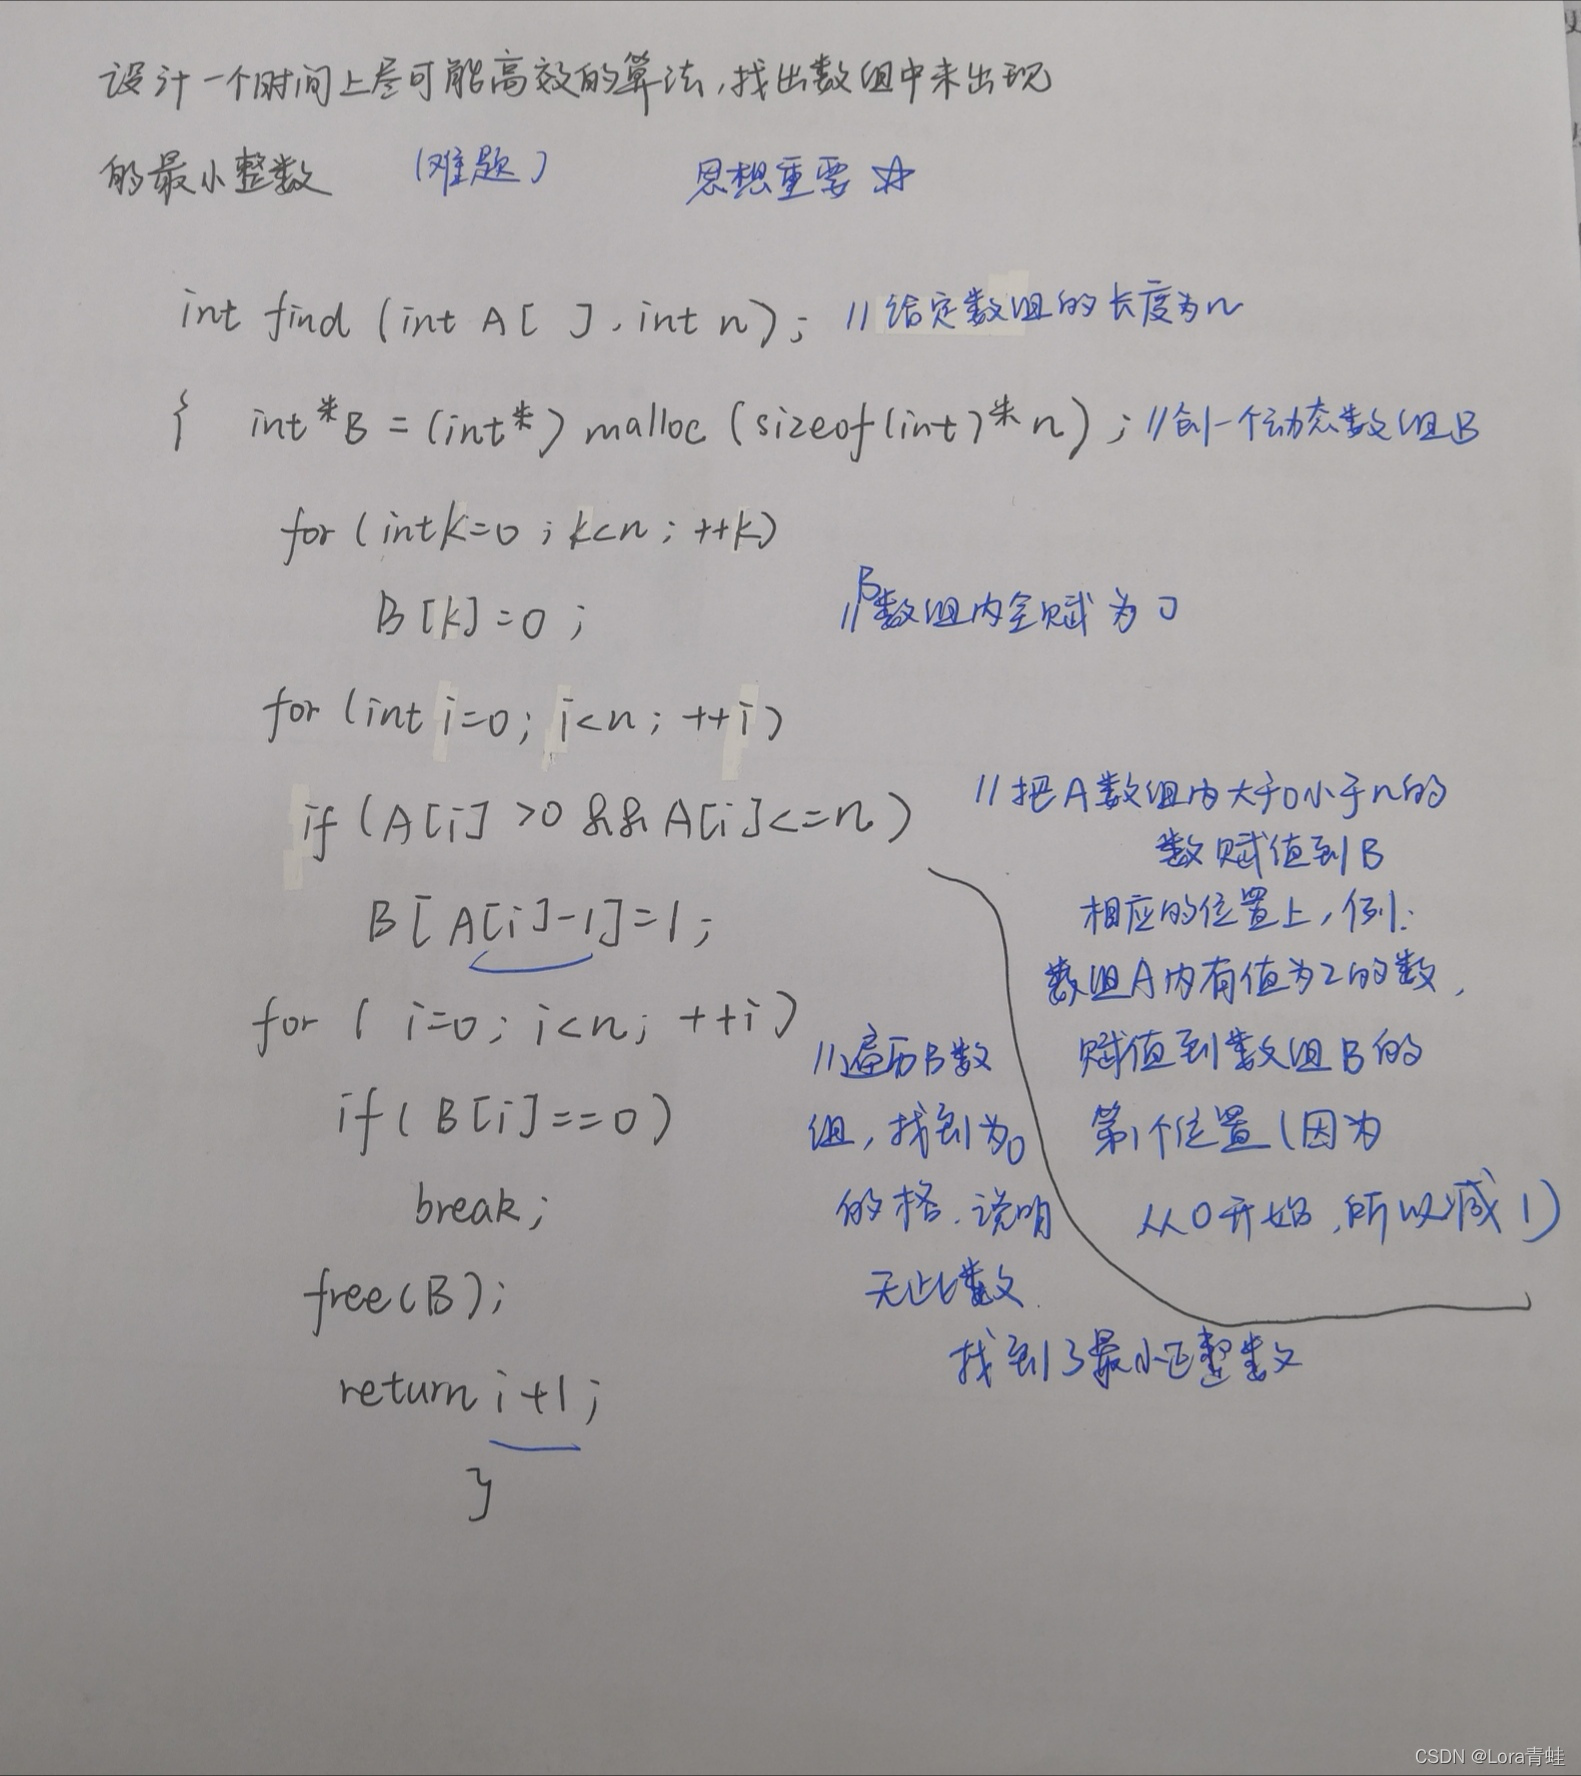 设计一个时间上尽可能高效的算法,找出数组中未出现
的最小整数 (难题) 思想重要☆
int find (int A[ ], int n); //给定数组的长度为n
{ int*B = (int*) malloc (sizeof(int)*n); //创一个动态数组B
for (int k=0; k<n; ++k)
B[k]=0; //B数组内全赋为0
for (int i=0; i<n; ++i)
if (A[i] >0 && A[i]<=n)
B[A[i]-1]=1;
//把A数组内大于0小于n的
数赋值到B
相应的位置上,例:
数组A内有值为2的数,
赋值到数组B的
第1个位置(因为
从0开始,所以减1)
for ( i=0; i<n; ++i)
if( B[i]==0)
break;
//遍历B数
组,找到为0
的格.说明
无此数.
找到了最小正整数
free(B);
return i+1;
}
CSDN @Lora青蛙